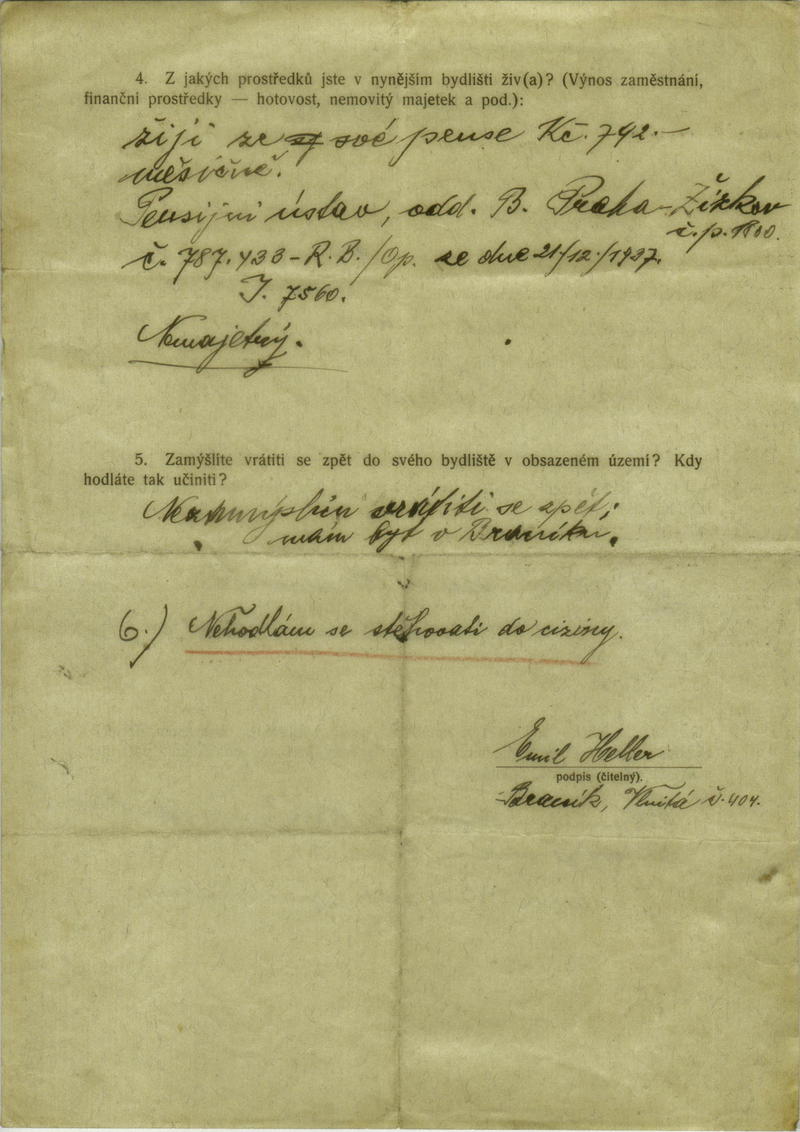 4. Z jakých prostředků jste v nynějším bydlišti živ(a)? (Výnos zaměstnání,
finanční prostředky — hotovost, nemovitý majetek a pod.):
žiji ze své pense Kč. 792.—
měsíčně.
Pensijní ústav, odd. B. Praha-Žižkov
č.p. 1800.
č. 787.433-R.B./Op. ze dne 21/12./1937.
J. 7560.
Nemajetný.
5. Zamýšlíte vrátiti se zpět do svého bydliště v obsazeném území? Kdy
hodláte tak učiniti?
Nezamýšlím vrátiti se zpět;
mám byt v Braníku.
6.) Nehodlám se stěhovati do ciziny.
Emil Heller
podpis (čitelný).
Braník, Vlnitá č. 404.